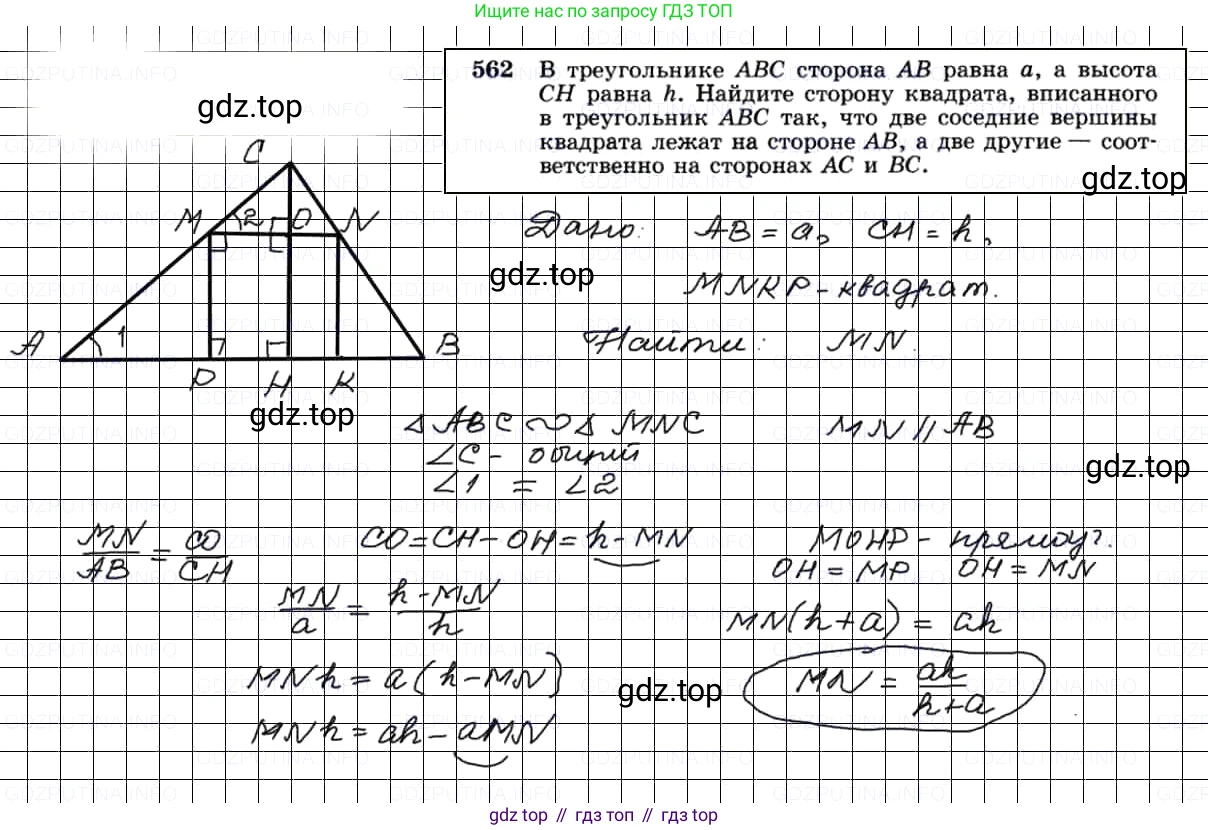 Ищите нас по запросу ГДЗ ТОП
gdz.top
562 В треугольнике ABC сторона AB равна a, а высота
CH равна h. Найдите сторону квадрата, вписанного
в треугольник ABC так, что две соседние вершины
квадрата лежат на стороне AB, а две другие — соот-
ветственно на сторонах AC и BC.
gdz.top
C
M 2 O N
A 1 B
P H K
gdz.top
Дано: AB = a, CH = h,
gdz.top
MNKP - квадрат.
Найти: MN.
△ ABC ∾ △ MNC MN // AB
∠C - общий
∠1 = ∠2
gdz.top
MN/AB = CO/CH CO = CH - OH = h - MN MOHP - прямоуг.
OH = MP OH = MN
MN/a = h - MN/h MN(h+a) = ah
MNh = a(h - MN) gdz.top MN = ah/h+a
MNh = ah - aMN
gdz top // гдз топ // gdz top
GDZPUTINA.INFO